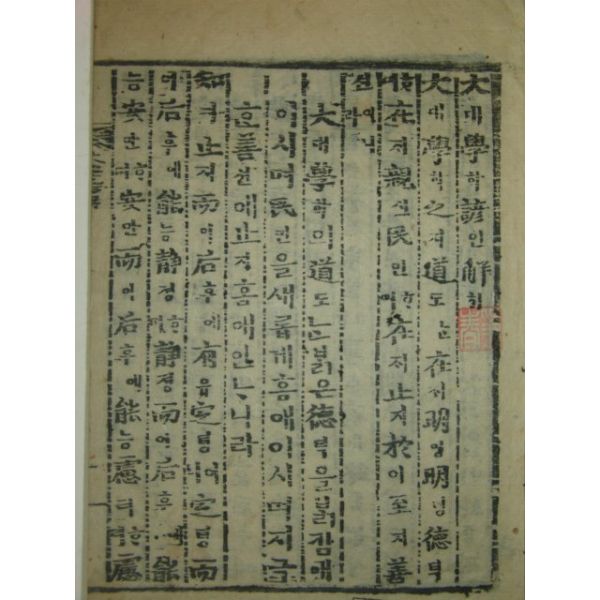 大대學학諺언解ᄒᆡ
大대學학之지道도ᄂᆞᆫ在ᄌᆡ明명明명德덕
ᄒᆞ며在ᄌᆡ親신民민ᄒᆞ며在ᄌᆡ止지於어至지善
션이니라
大대學학의道도ᄂᆞᆫ붉은德덕을붉킴애
이시며民민을새롭게홈애이시며지극
ᄒᆞᆫ善션에止지홈애인ᄂᆞ니라
知지止지而이后후에有유定뎡이니定뎡而
이后후에能능静졍ᄒᆞ며静졍而이后후에能
능安안ᄒᆞ며安안而이后후에能능慮려ᄒᆞ며慮